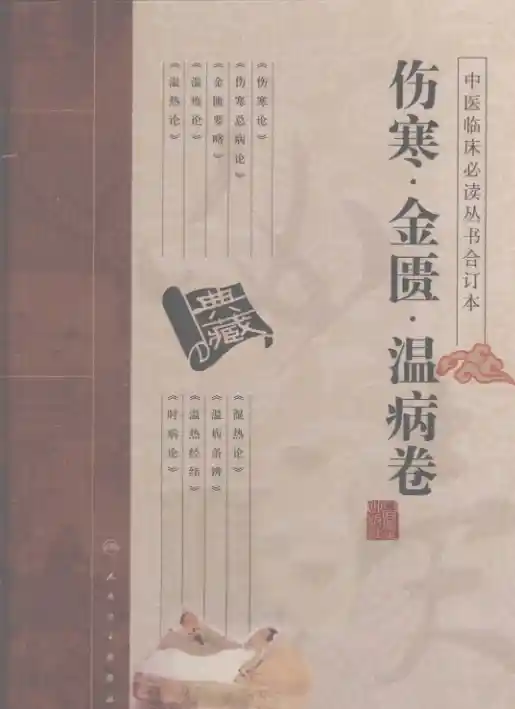 中医临床必读丛书合订本
伤寒·金匮·温病卷
《伤寒论》
《伤寒总病论》
《金匮要略》
《温疫论》
《温热论》
典藏
《湿热论》
《温病条辨》
《温热经纬》
《时病论》
人民卫生出版社